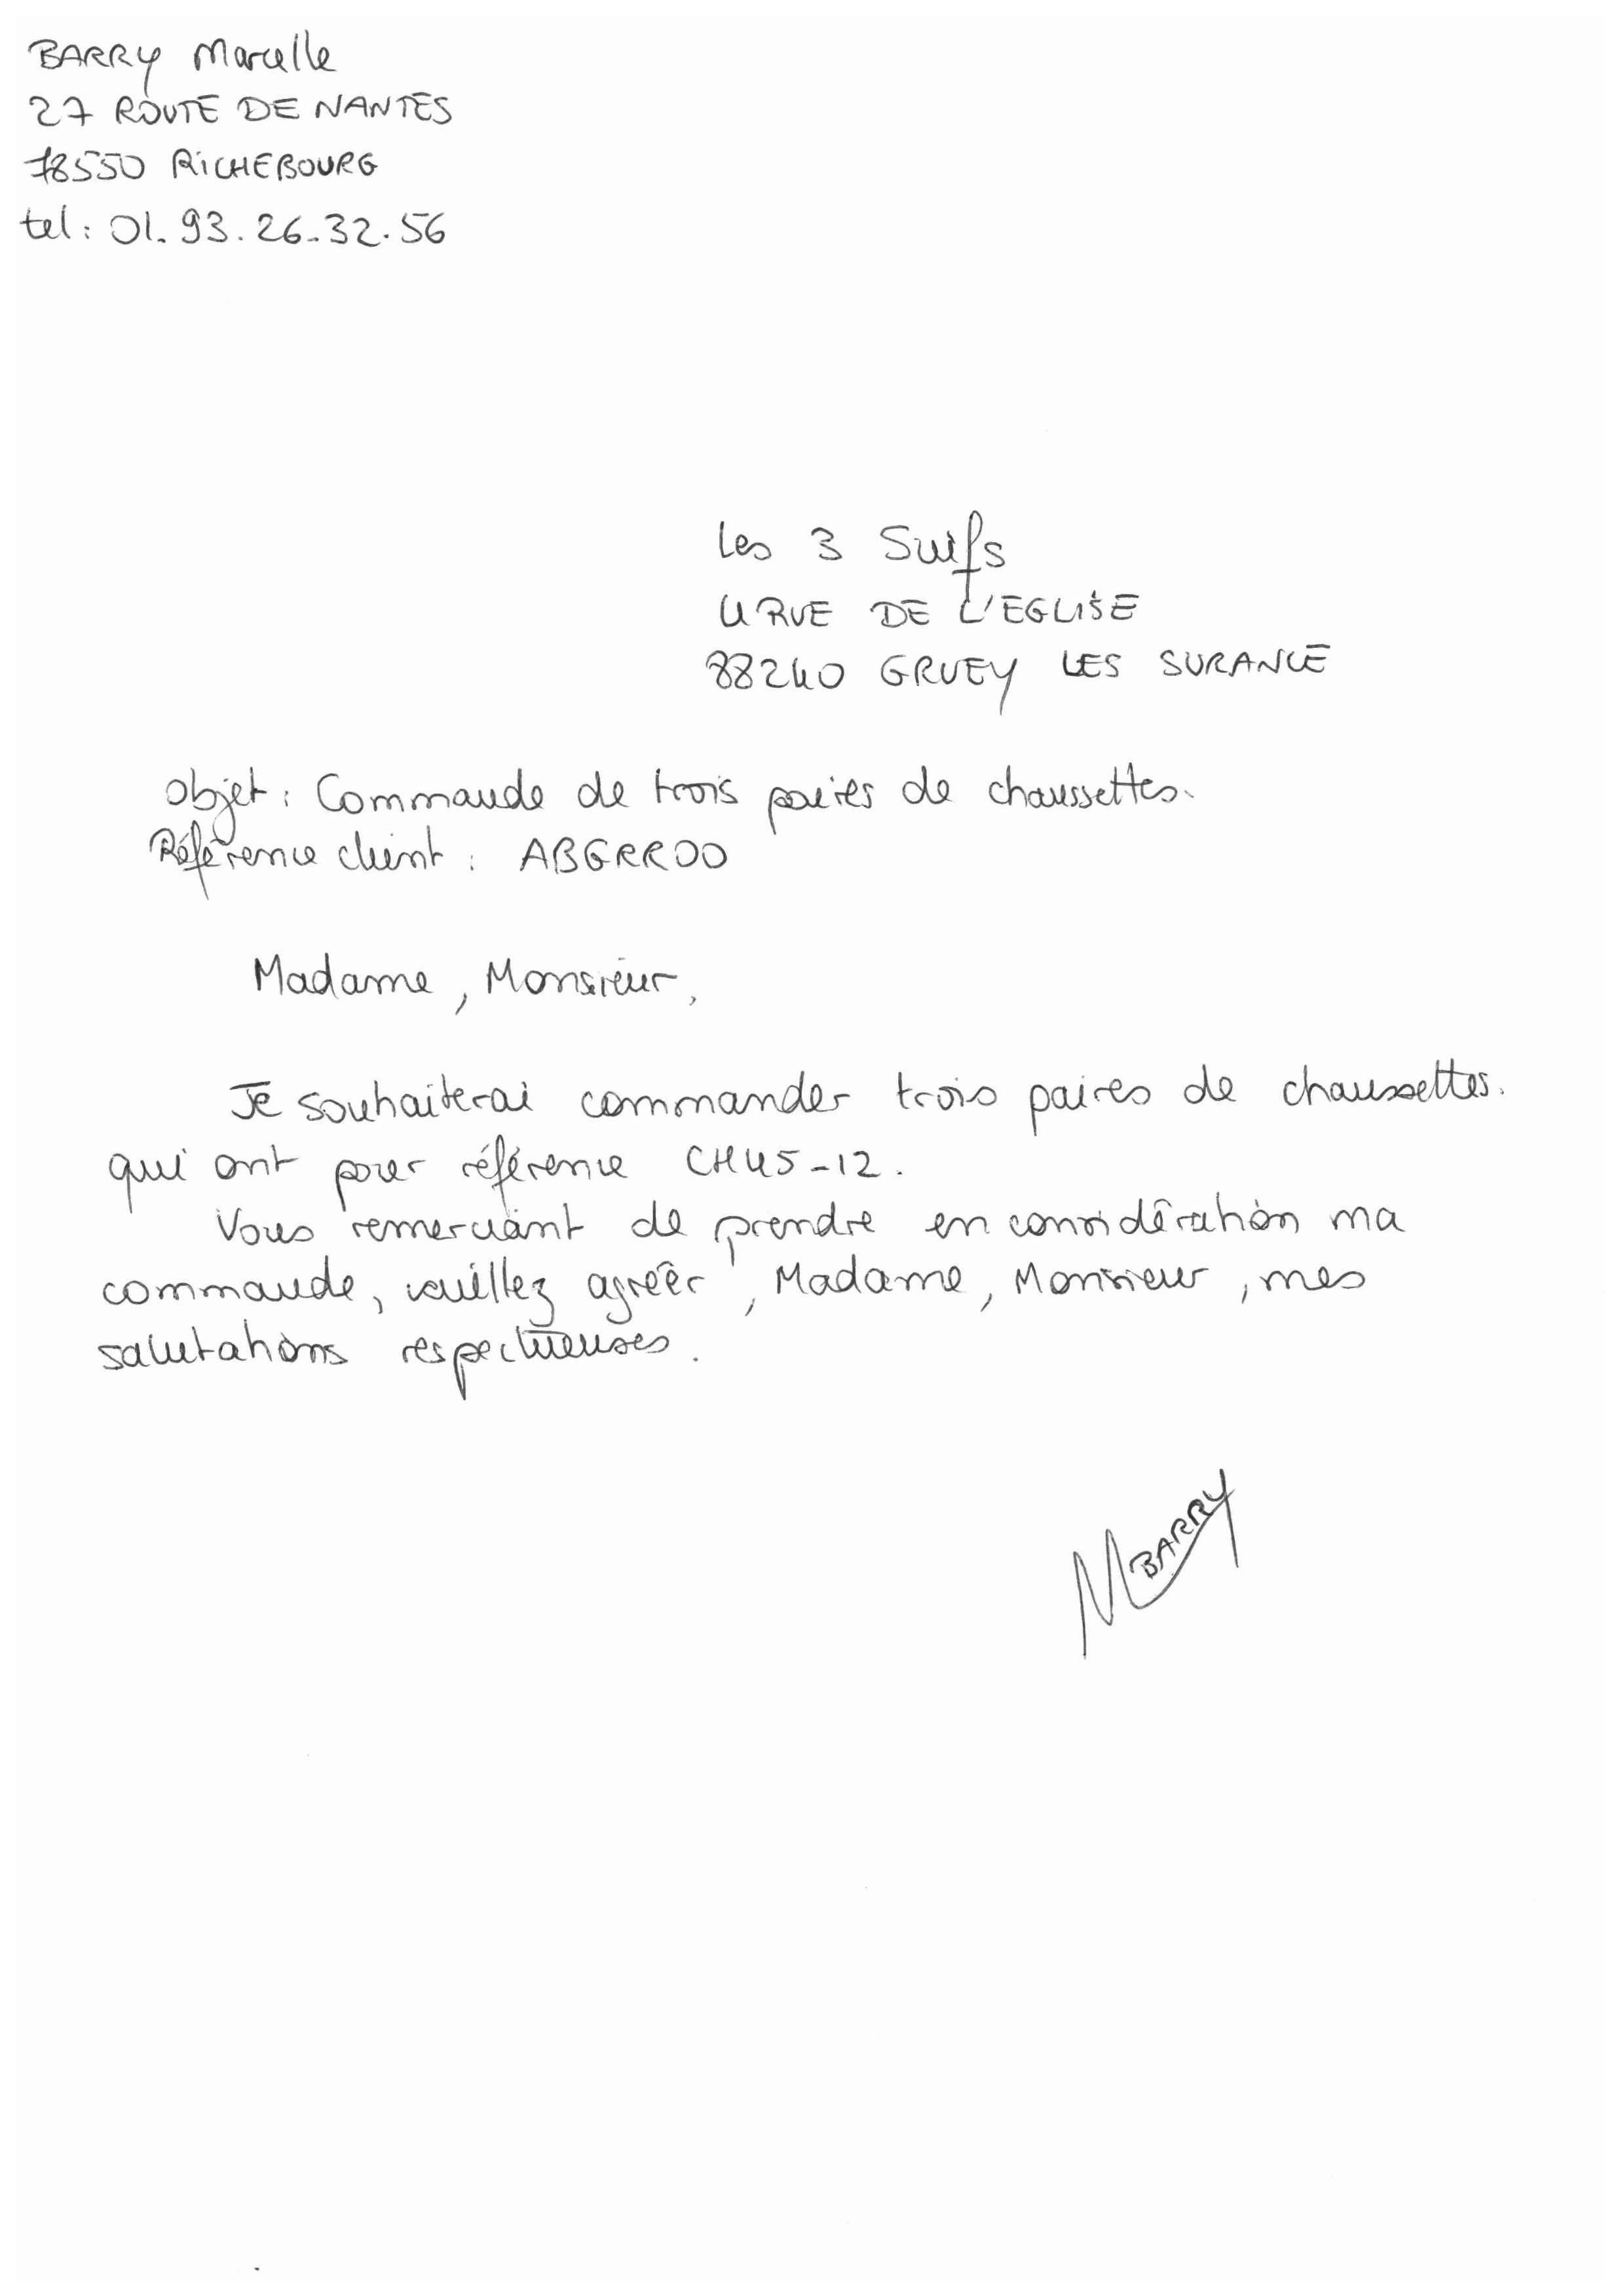 BARRY Marcelle
27 ROUTE DE NANTES
78550 RICHEBOURG
tel : 01.93.26.32.56
Les 3 Suifs
4 RUE DE L'EGLISE
88240 GRUEY LES SURANCE
Objet : Commande de trois paires de chaussettes.
Référence client : ABGRR00
Madame, Monsieur,
Je souhaiterai commander trois paires de chaussettes.
qui ont pour référence CH45-12.
Vous remerciant de prendre en considération ma
commande, veuillez agréer, Madame, Monsieur, mes
salutations respectueuses.
M BARRY